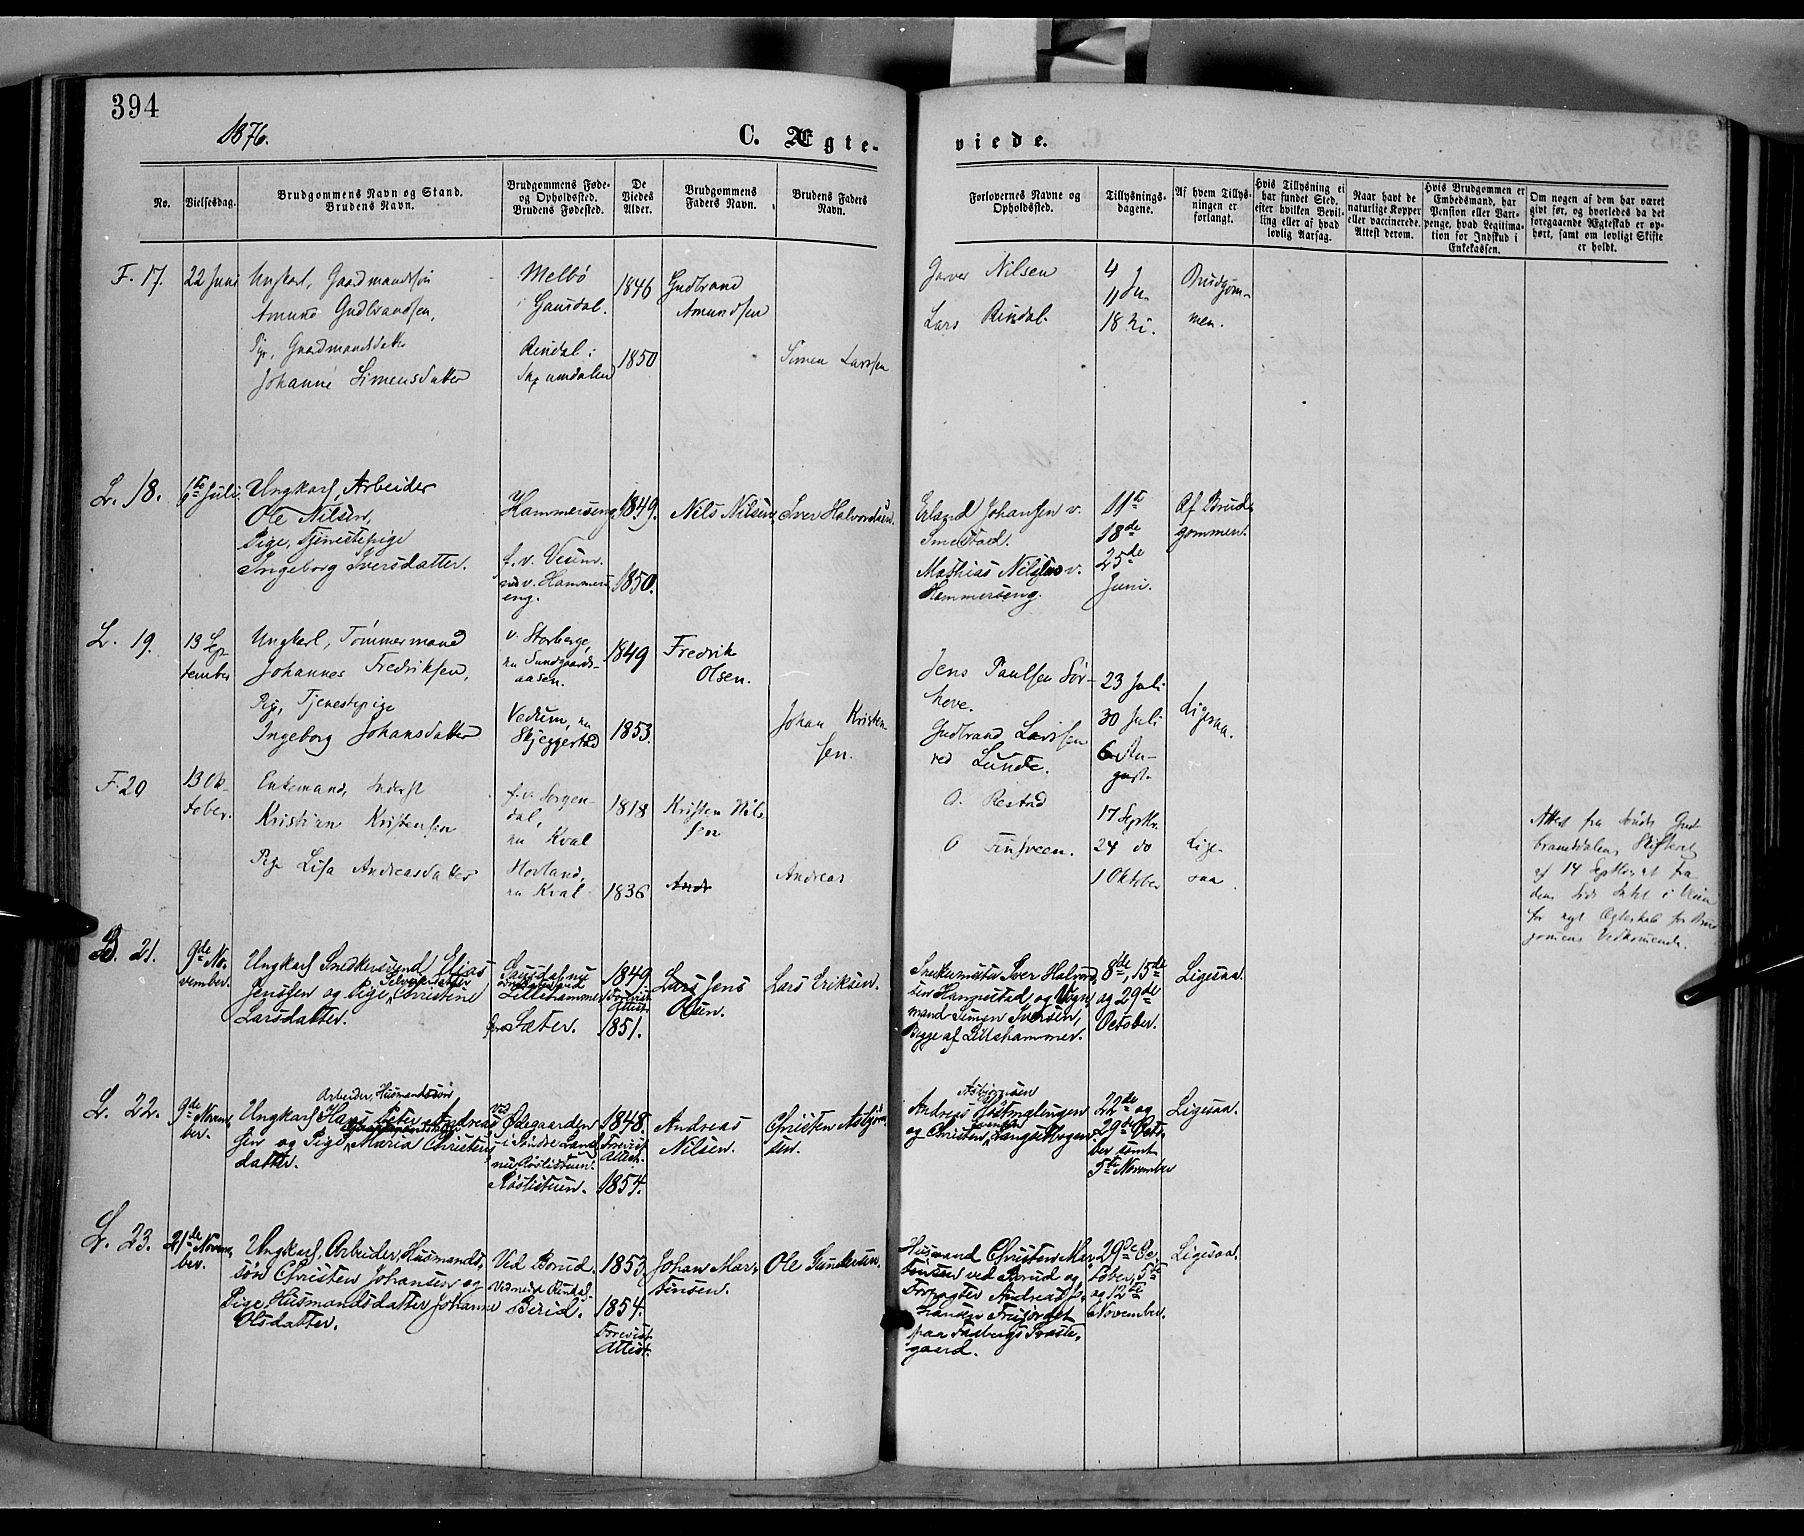 394
1876.
C. Ægte-
viede.
No.
Vielsesdag.
Brudgommens Navn og Stand.
Brudens Navn.
Brudgommens Føde-
og Opholdssted.
Brudens Fødested.
De
Viedes
Alder.
Brudgommens
Faders Navn.
Brudens Faders
Navn.
Forlovernes Navne og
Opholdssted.
Tillysnings-
dagene.
Af hvem Tillys-
ningen er
forlangt.
Hvis Tillysning ei
har fundet Sted,
efter hvilken Bevil-
ling eller af hvad
lovlig Aarsag.
Naar havt de
naturlige Kopper
eller vaccinerede.
Attest derom.
Hvis Brudgommen er
Embedsmand, har
Pension eller Vart-
penge, hvad Legitima-
tion for Indskud i
Enkekassen.
Om nogen af dem har været
givt før, og hvorledes da det
foregaaende Ægteskab er op-
hørt, samt om lovligt Skifte
er holdt.
F. 17.
22 Juni
Ungkarl, Gaardmandssøn
Amund Gudbrandsen,
Pige, Gaardmandsdatter
Johanne Simensdatter
Melbö
i Gausdal.
Rindal i
1846
1850
Gudbrand
Amundsen
Simen Larssen
Nilsen
Lars Rindal.
4
11 Ju-
18 ni.
Brudgom-
men.
L. 18.
6te Juli.
Ungkarl, Arbeider
Ole Nilsen,
Pige, Tjenestepige
Ingeborg Iversdatter.
Hammerseng.
f. v. Veum.
nu v. Hammers-
eng.
1849.
1850.
Nils Nilsen
Iver Halvorsen.
Erland Johansen v.
Smestad.
Mathias Nilsen v.
Hammerseng.
11te
18de
25de
Juni.
Af Brud-
gommen.
L. 19.
13 Sep-
tember
Ungkarl, Tömmermand
Johannes Fredriksen,
Pige, Tjenestepige
Ingeborg Johansdatter
v. Storberge,
nu Sundgaards-
aasen.
Vedum, nu
Skjeggerstad
1849
1853.
Fredrik
Olsen.
Johan Kristen-
sen.
Jens Paulsen Sör-
hove.
Gudbrand Larssen
ved Lunde.
23 Juli
30 Juli
6 Au-
gust.
Ligesaa.
F. 20
13 Ok-
tober.
Enkemand, Inderst
Kristian Kristensen
Pige Lisa Andreasdatter
f. v. Sorgen-
dal,
nu Kval
Hovland,
nu Kval
1818
1836
Kristen Nil-
sen
Andr
Andreas
O. Restad
O
17 Septbr.
24 do
1 Oktober
Lige-
saa.
Attest fra Söndre Gud-
brandsdalens Skifteret
af 14 Septbr
for nyt Ægteskab for Brud-
gomens Vedkomende.
B. 21.
9de No-
vember.
Ungkarl Snedkersvend Elias
Jenssen og Pige, Selveierdatter Christine
Larsdatter.
Gausdal nu
Lillehammer
Sæter.
1849.
Forevist
Attest.
1851.
Lars Jens
Olsen.
Lars Eriksen.
Snekkermester Iver Halvor-
sen Hanpestad, og Vogn-
mand Simen Iversen,
Begge af Lillehammer.
8de, 15de
og 29de
October.
Ligesaa.
L. 22.
9de Novem-
ber.
Arbeider, Husmandssøn
Ungkarl Hans Peter Andreas-
sen og Pige, Maria Christens-
datter.
Ved
Ødegaarden
i Söndre Land
nu Röslistuen.
Röslistuen.
1848.
Forevist
Attest.
1854.
Andreas
Nilsen.
Christen Asbjörn-
sen.
Asbjörnsen
Andreas
og Christen
22de og
29de Octo-
ber samt
5te November
Ligesaa.
L. 23.
21de Novem-
ber.
Ungkarl, Arbeider, Husmands-
søn Christen Johansen og
Pige Husmandsdatter Johanne
Olsdatter.
Ved Borud.
Berud.
1853.
1854.
Forevist
Attest.
Johan Mar-
tinsen.
Ole Gundersen.
Husmand Christen Mar-
tinsen ved Borud og
Forpagter Andreas Jo-
hansen
paa Faabergs Præste-
gaard.
29de Oc-
tober, 5te
og 12te
November.
Ligesaa.